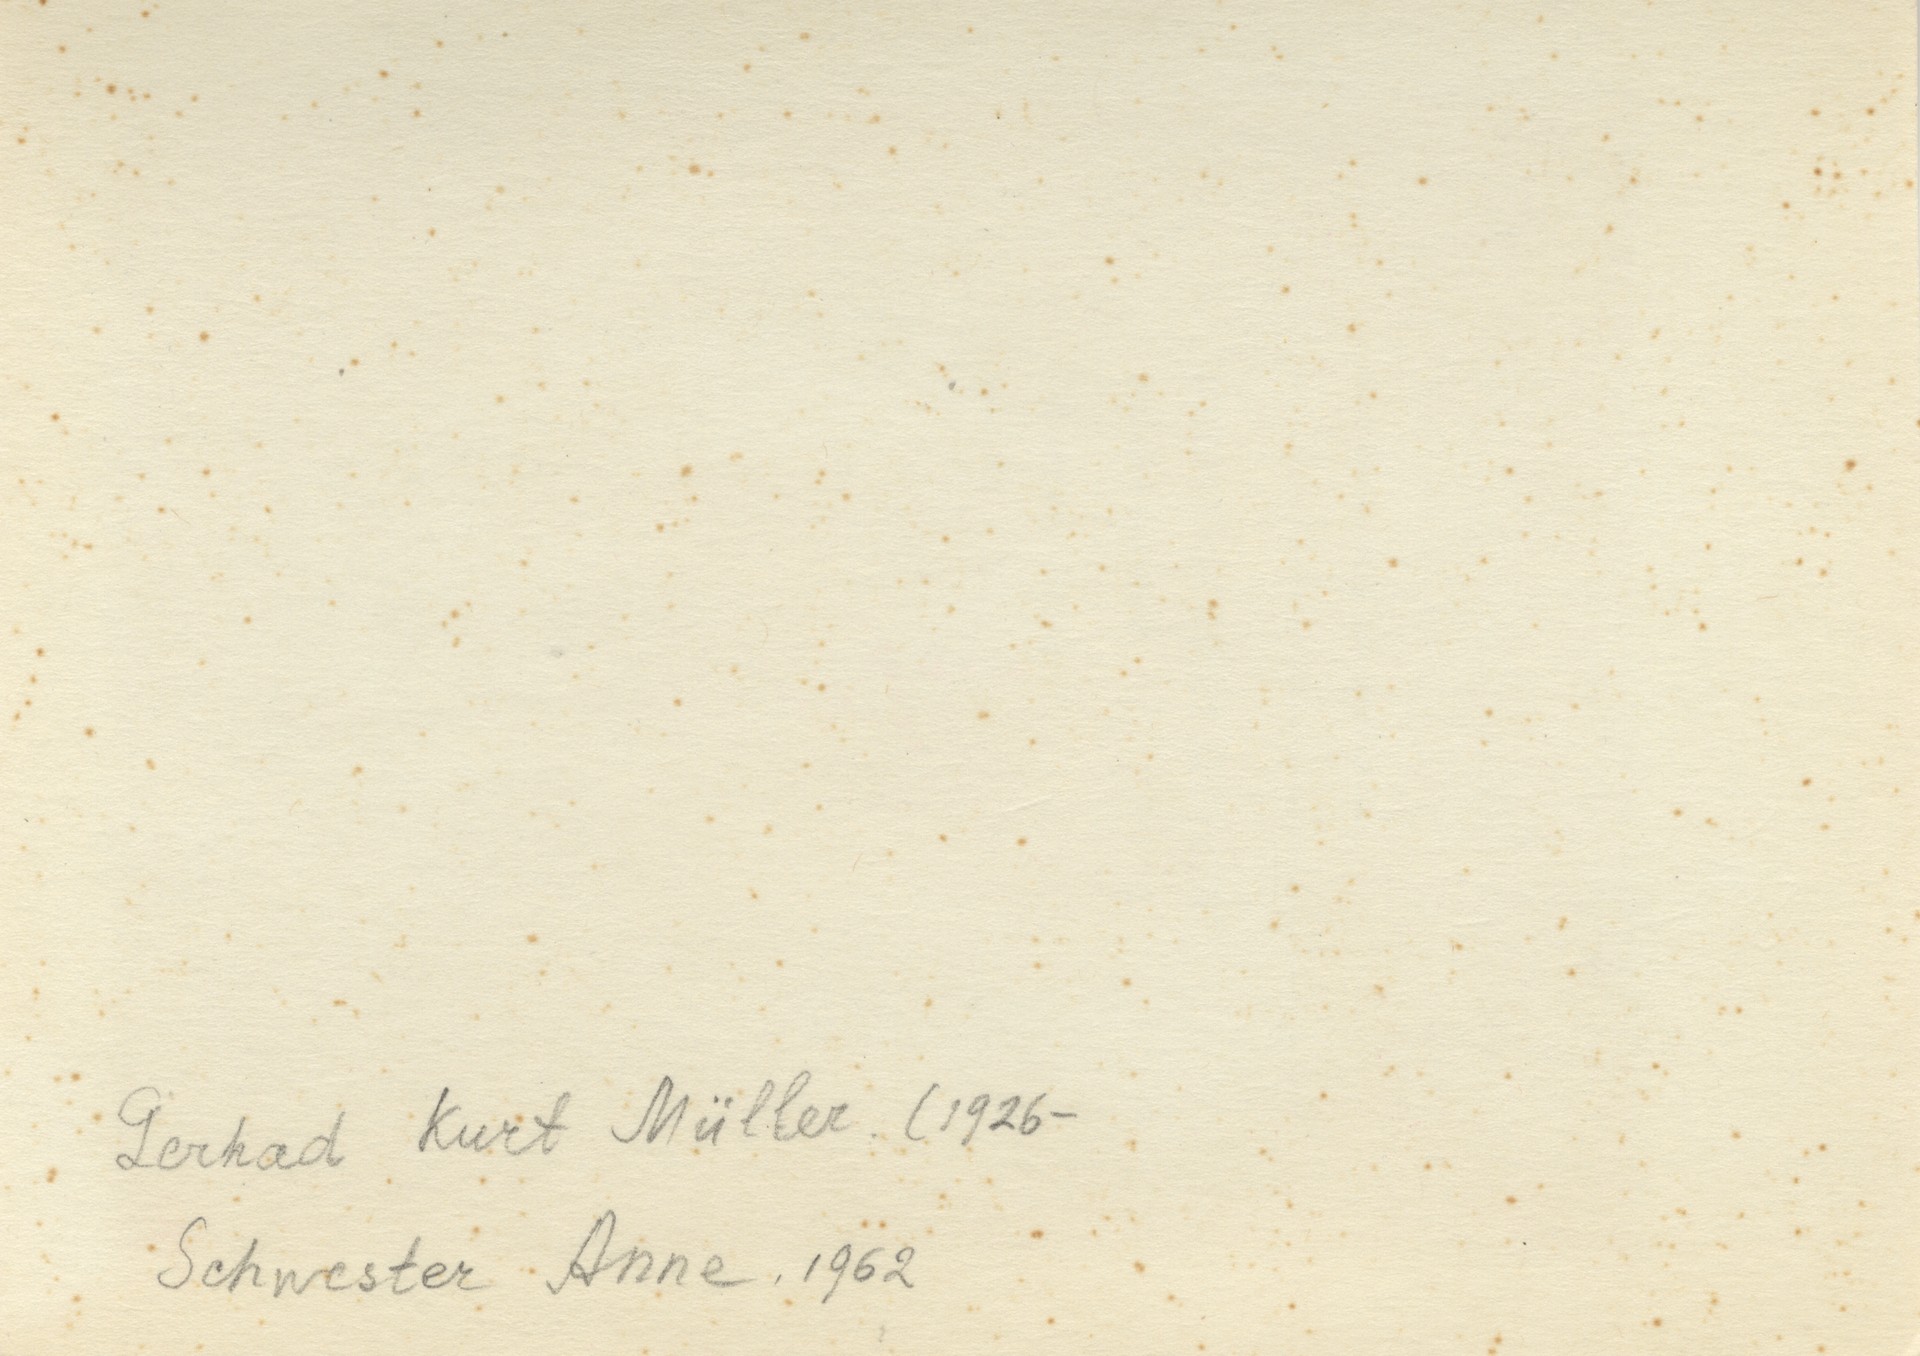 Gerhad Kurt Müller. (1926-
Schwester Anne. 1962